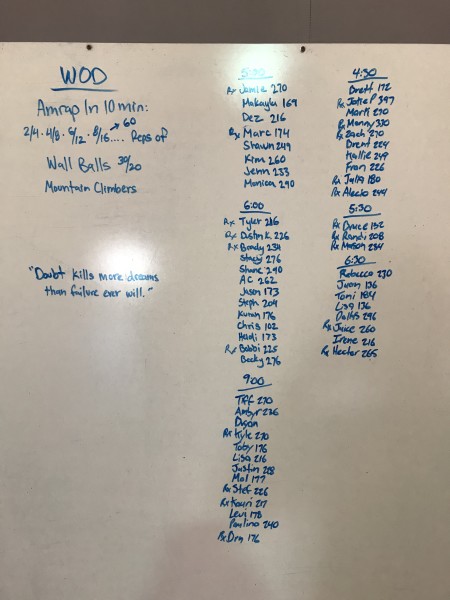 WOD
Amrap In 10 min:
2/4 · 4/8 · 6/12 · 8/16 .... → 60 Reps of
Wall Balls 30/20
Mountain Climbers
"Doubt kills more dreams
than failure ever will."
5:30
Rx Jamie 270
Makayla 169
Dez 216
Rx Marc 174
Shawn 249
Kim 260
Jenn 233
Monica 290
6:00
Rx Tyler 216
Rx Dustin K. 226
Rx Bandy 234
Stacy 276
Shane 240
AC 262
Jason 173
Steph 204
176
Chris 102
Heidi 173
Rx Bobbi 225
Becky 276
9:00
Tiff 270
Ambyr 236
Rx Kyle 270
Toby 176
Lisa 216
Justin 218
Mal 177
Rx Stef 226
Rx Kauri 217
Levi 178
Paulina 240
Rx Dm 176
4:30
Brett 172
Rx Jatie P 397
Marti 270
Rx Manny 330
Rx Zach 270
Brent 224
Hallie 249
Fran 226
Rx Julia 180
Rx Alecio 244
5:30
Rx Bruce 152
Rx Randi 208
Rx Mason 284
6:30
Rebecca 230
Juan 136
Toni 184
Lisa 136
296
Rx Juice 260
Irene 216
Rx Hector 265